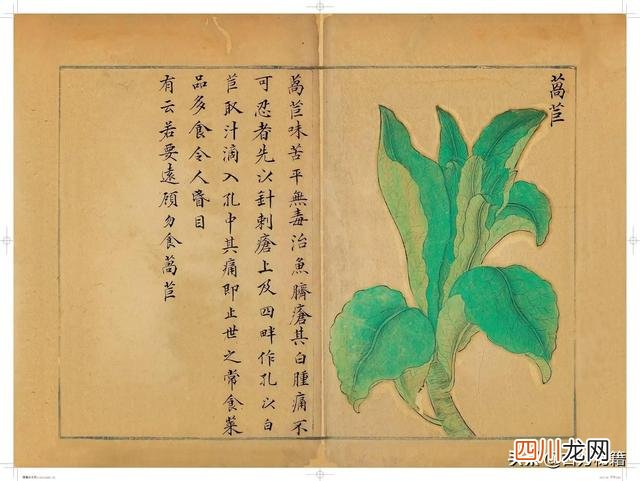 萵苣
萵苣味苦平無毒治魚臍瘡其白腫痛不
可忍者先以針刺瘡上及四畔作孔以白
苣取汁滴入孔中其痛即止世之常食菜
品多食令人目
有云若要遠頋勿食萵苣
四川龙网